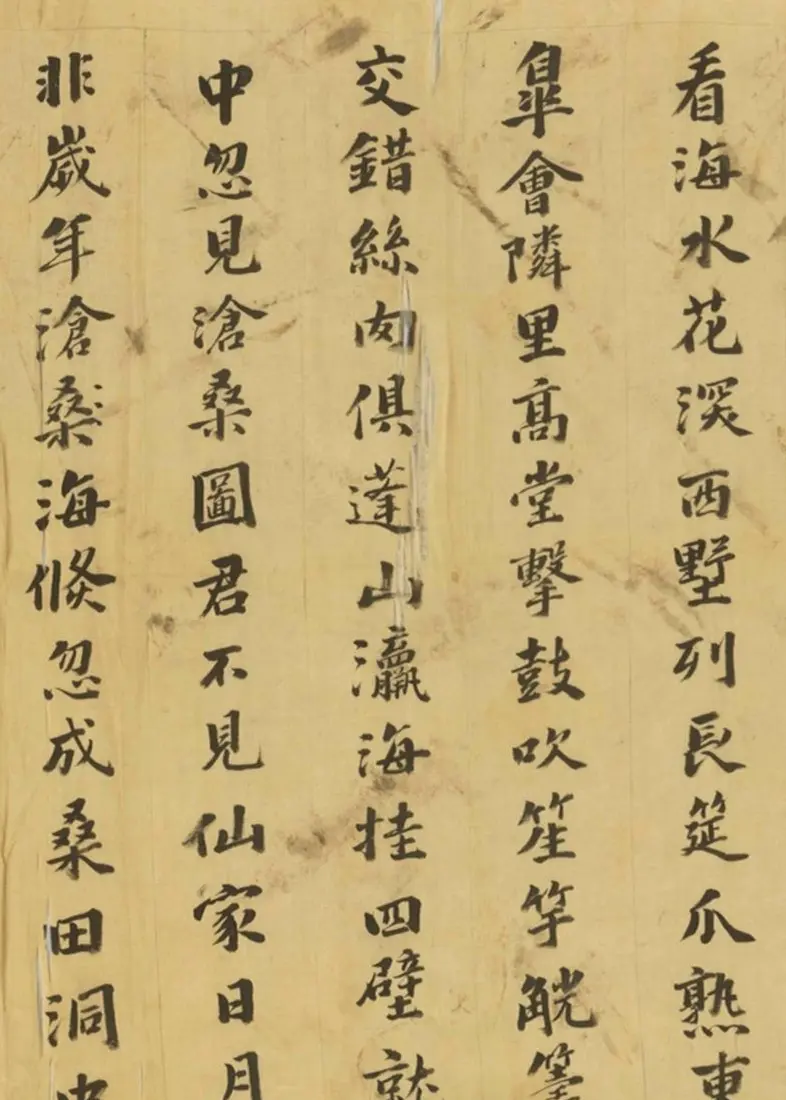 看海水花深西墅列長筵爪熟東
皐會隣里高堂擊鼓吹笙竽觥籌
交錯絲肉俱蓬山瀛海挂四壁就
中忽見滄桑圖君不見仙家日月
非歲年滄桑海倐忽成桑田洞中